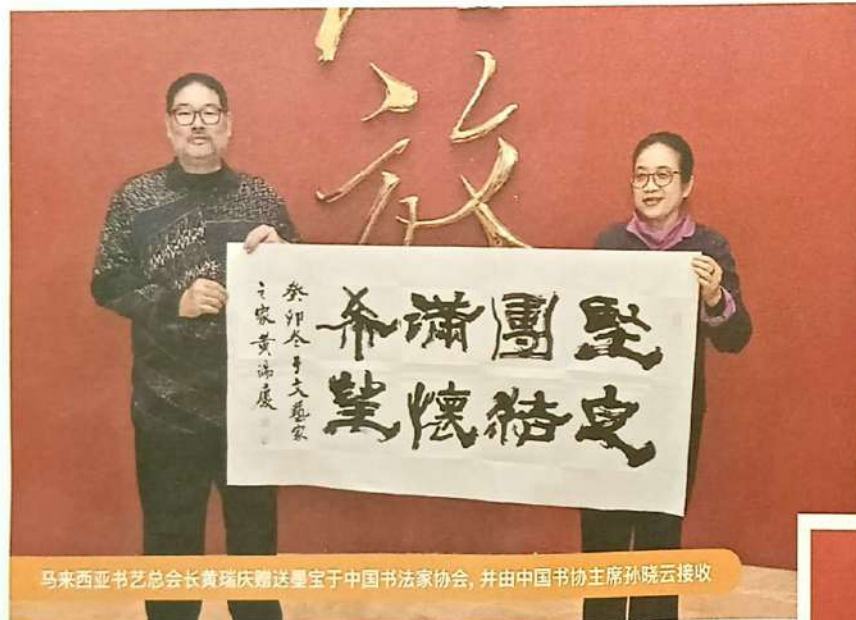 放
堅定
團結
滿懷
希望
癸卯冬于文藝家
之家黃瑞慶
马来西亚书艺总会长黄瑞庆赠送墨宝于中国书法家协会, 并由中国书协主席孙晓云接收